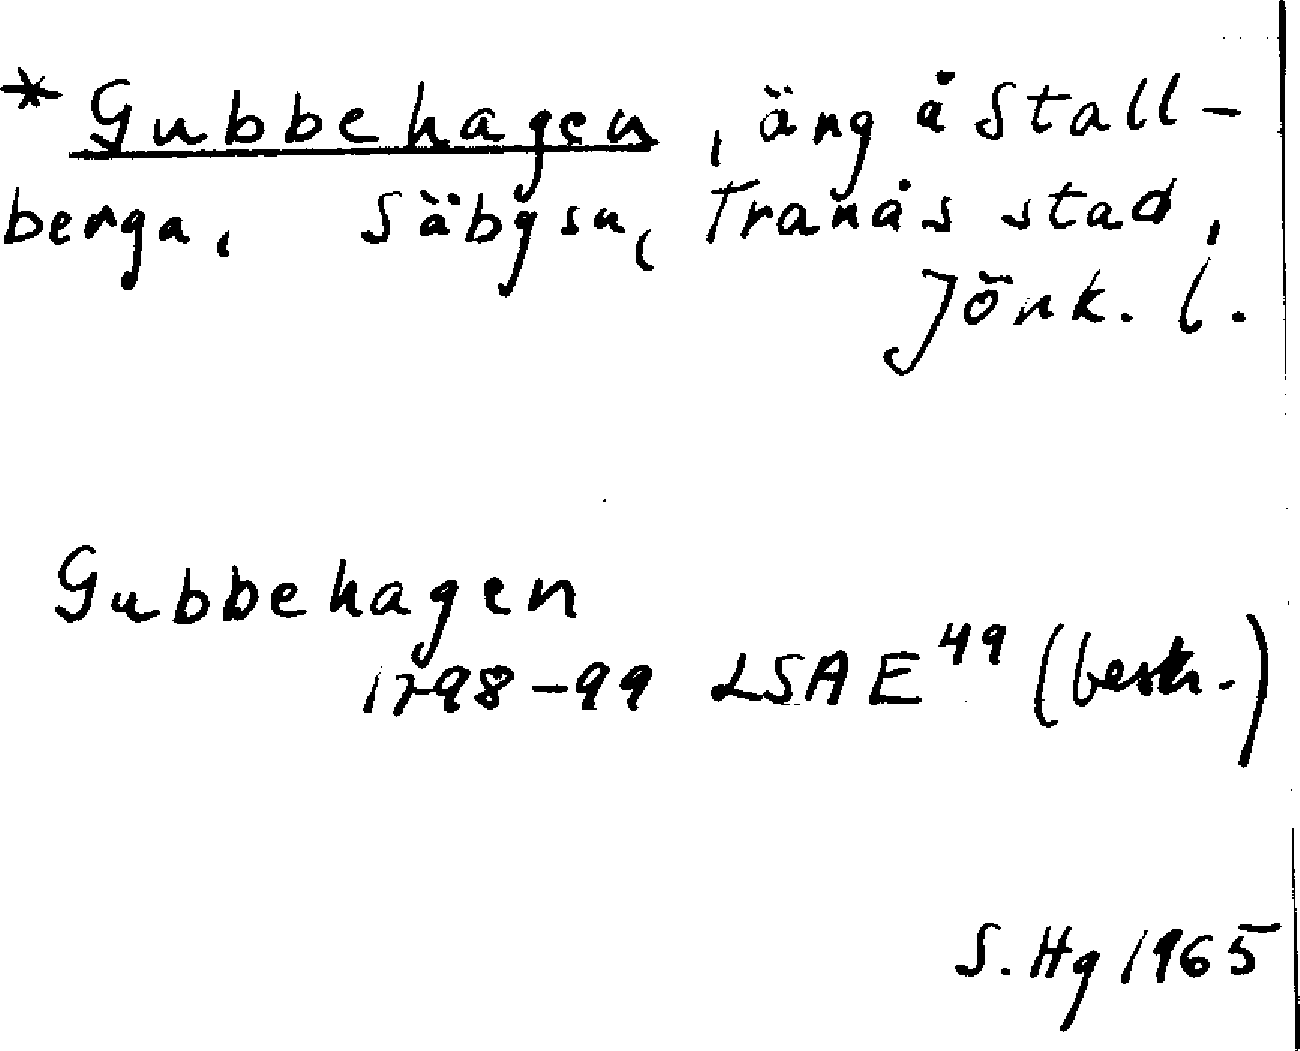 *Gubbehagen, äng å Stall-
berga, Säby sn, Tranås stad,
Jönk. l.
Gubbehagen
1798-99 LSA E 49 (beskr.)
S. Hg 1965